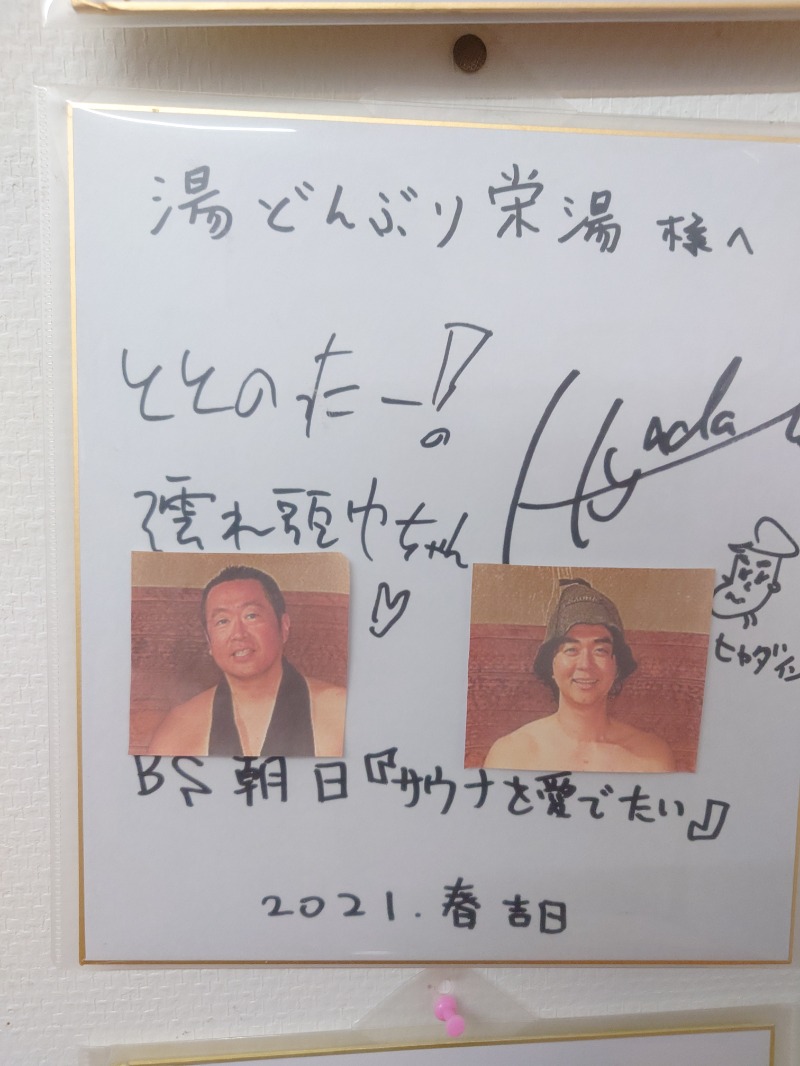 湯どんぶり栄湯 様へ
ととのったー!の
濡れ頭巾ちゃん
Hyada
ヒャダイン
BS朝日『サウナを愛でたい』
2021.春吉日